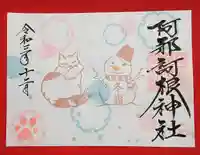 阿邪訶根神社
令和三年十二月